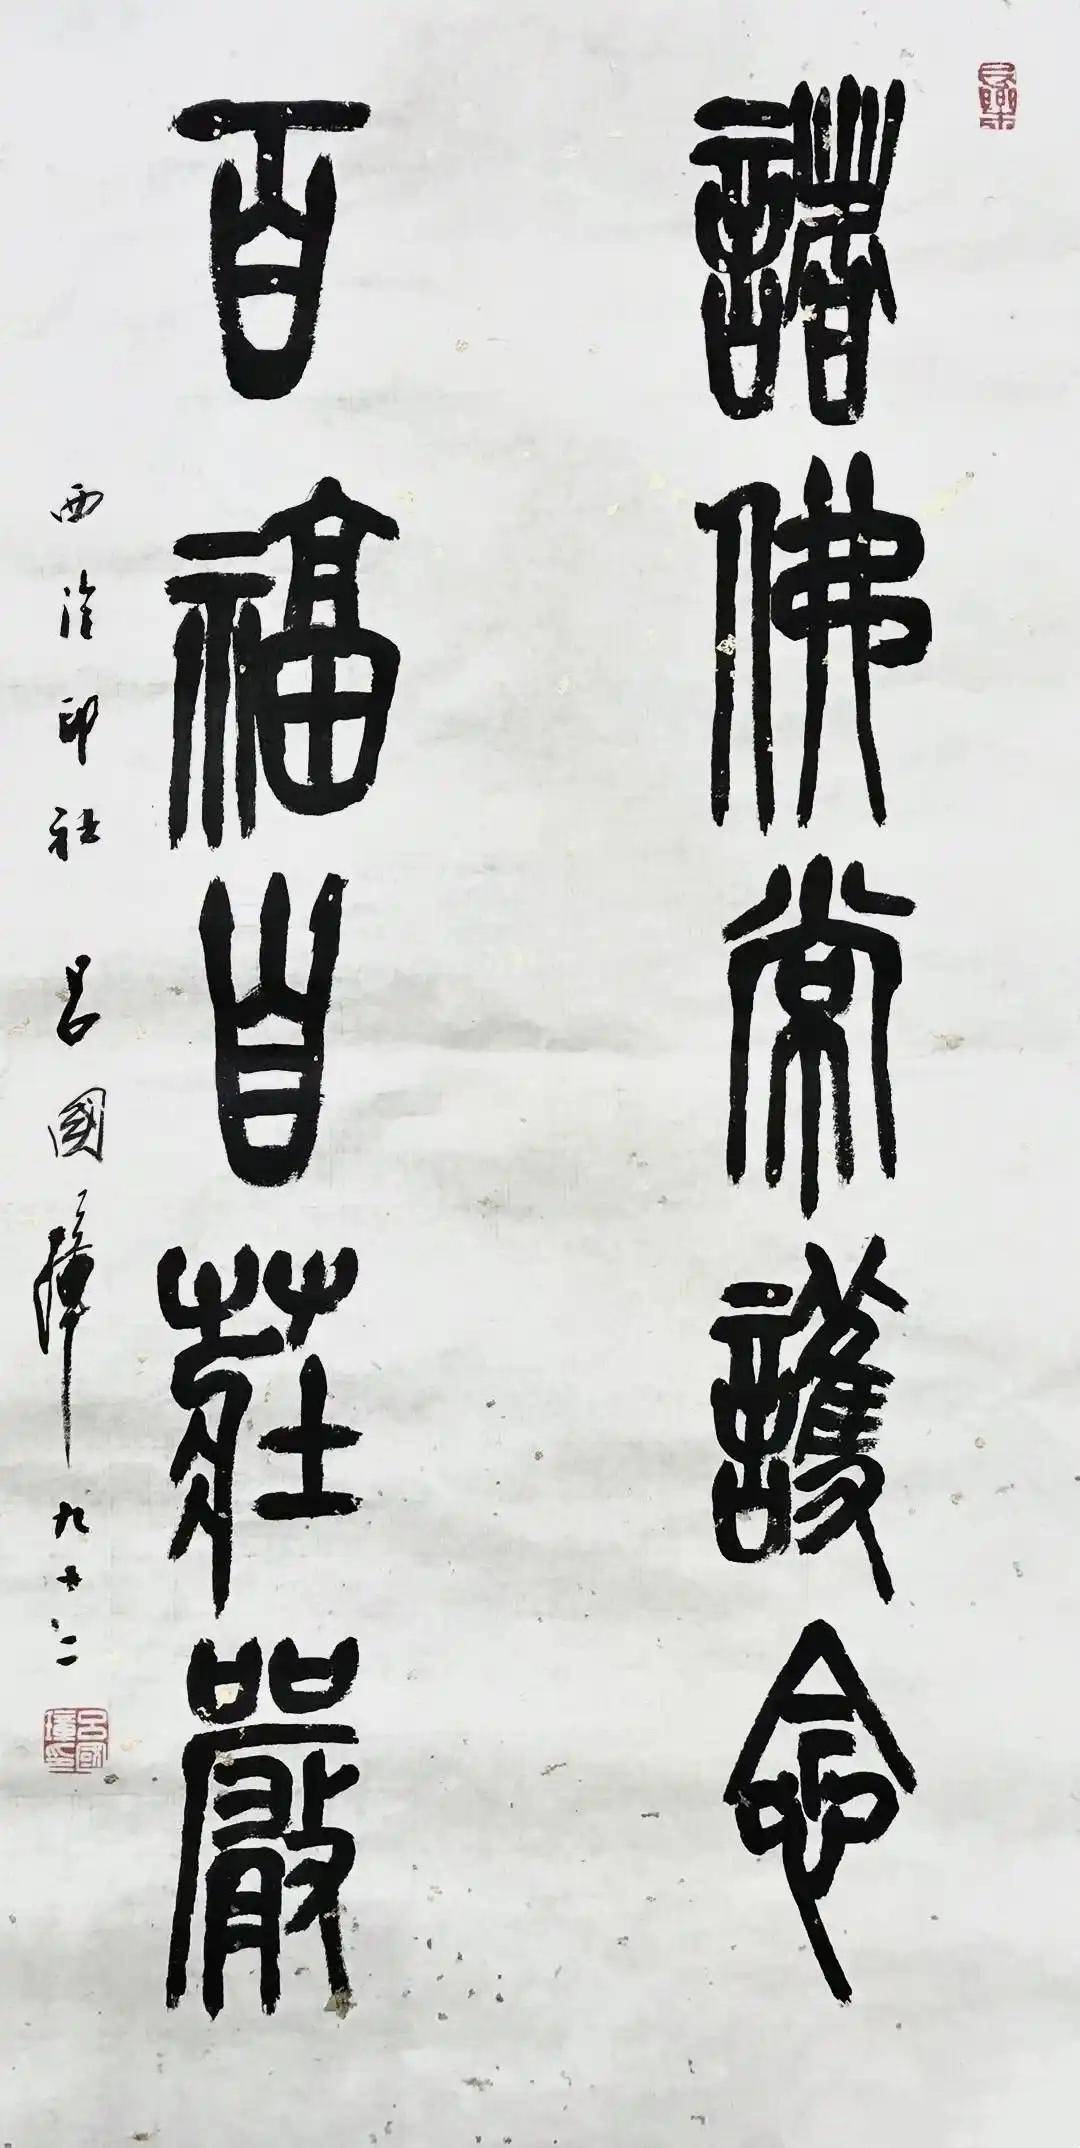 諸佛常護念
百福自莊嚴
西泠印社呂國璋九十二
呂國璋印